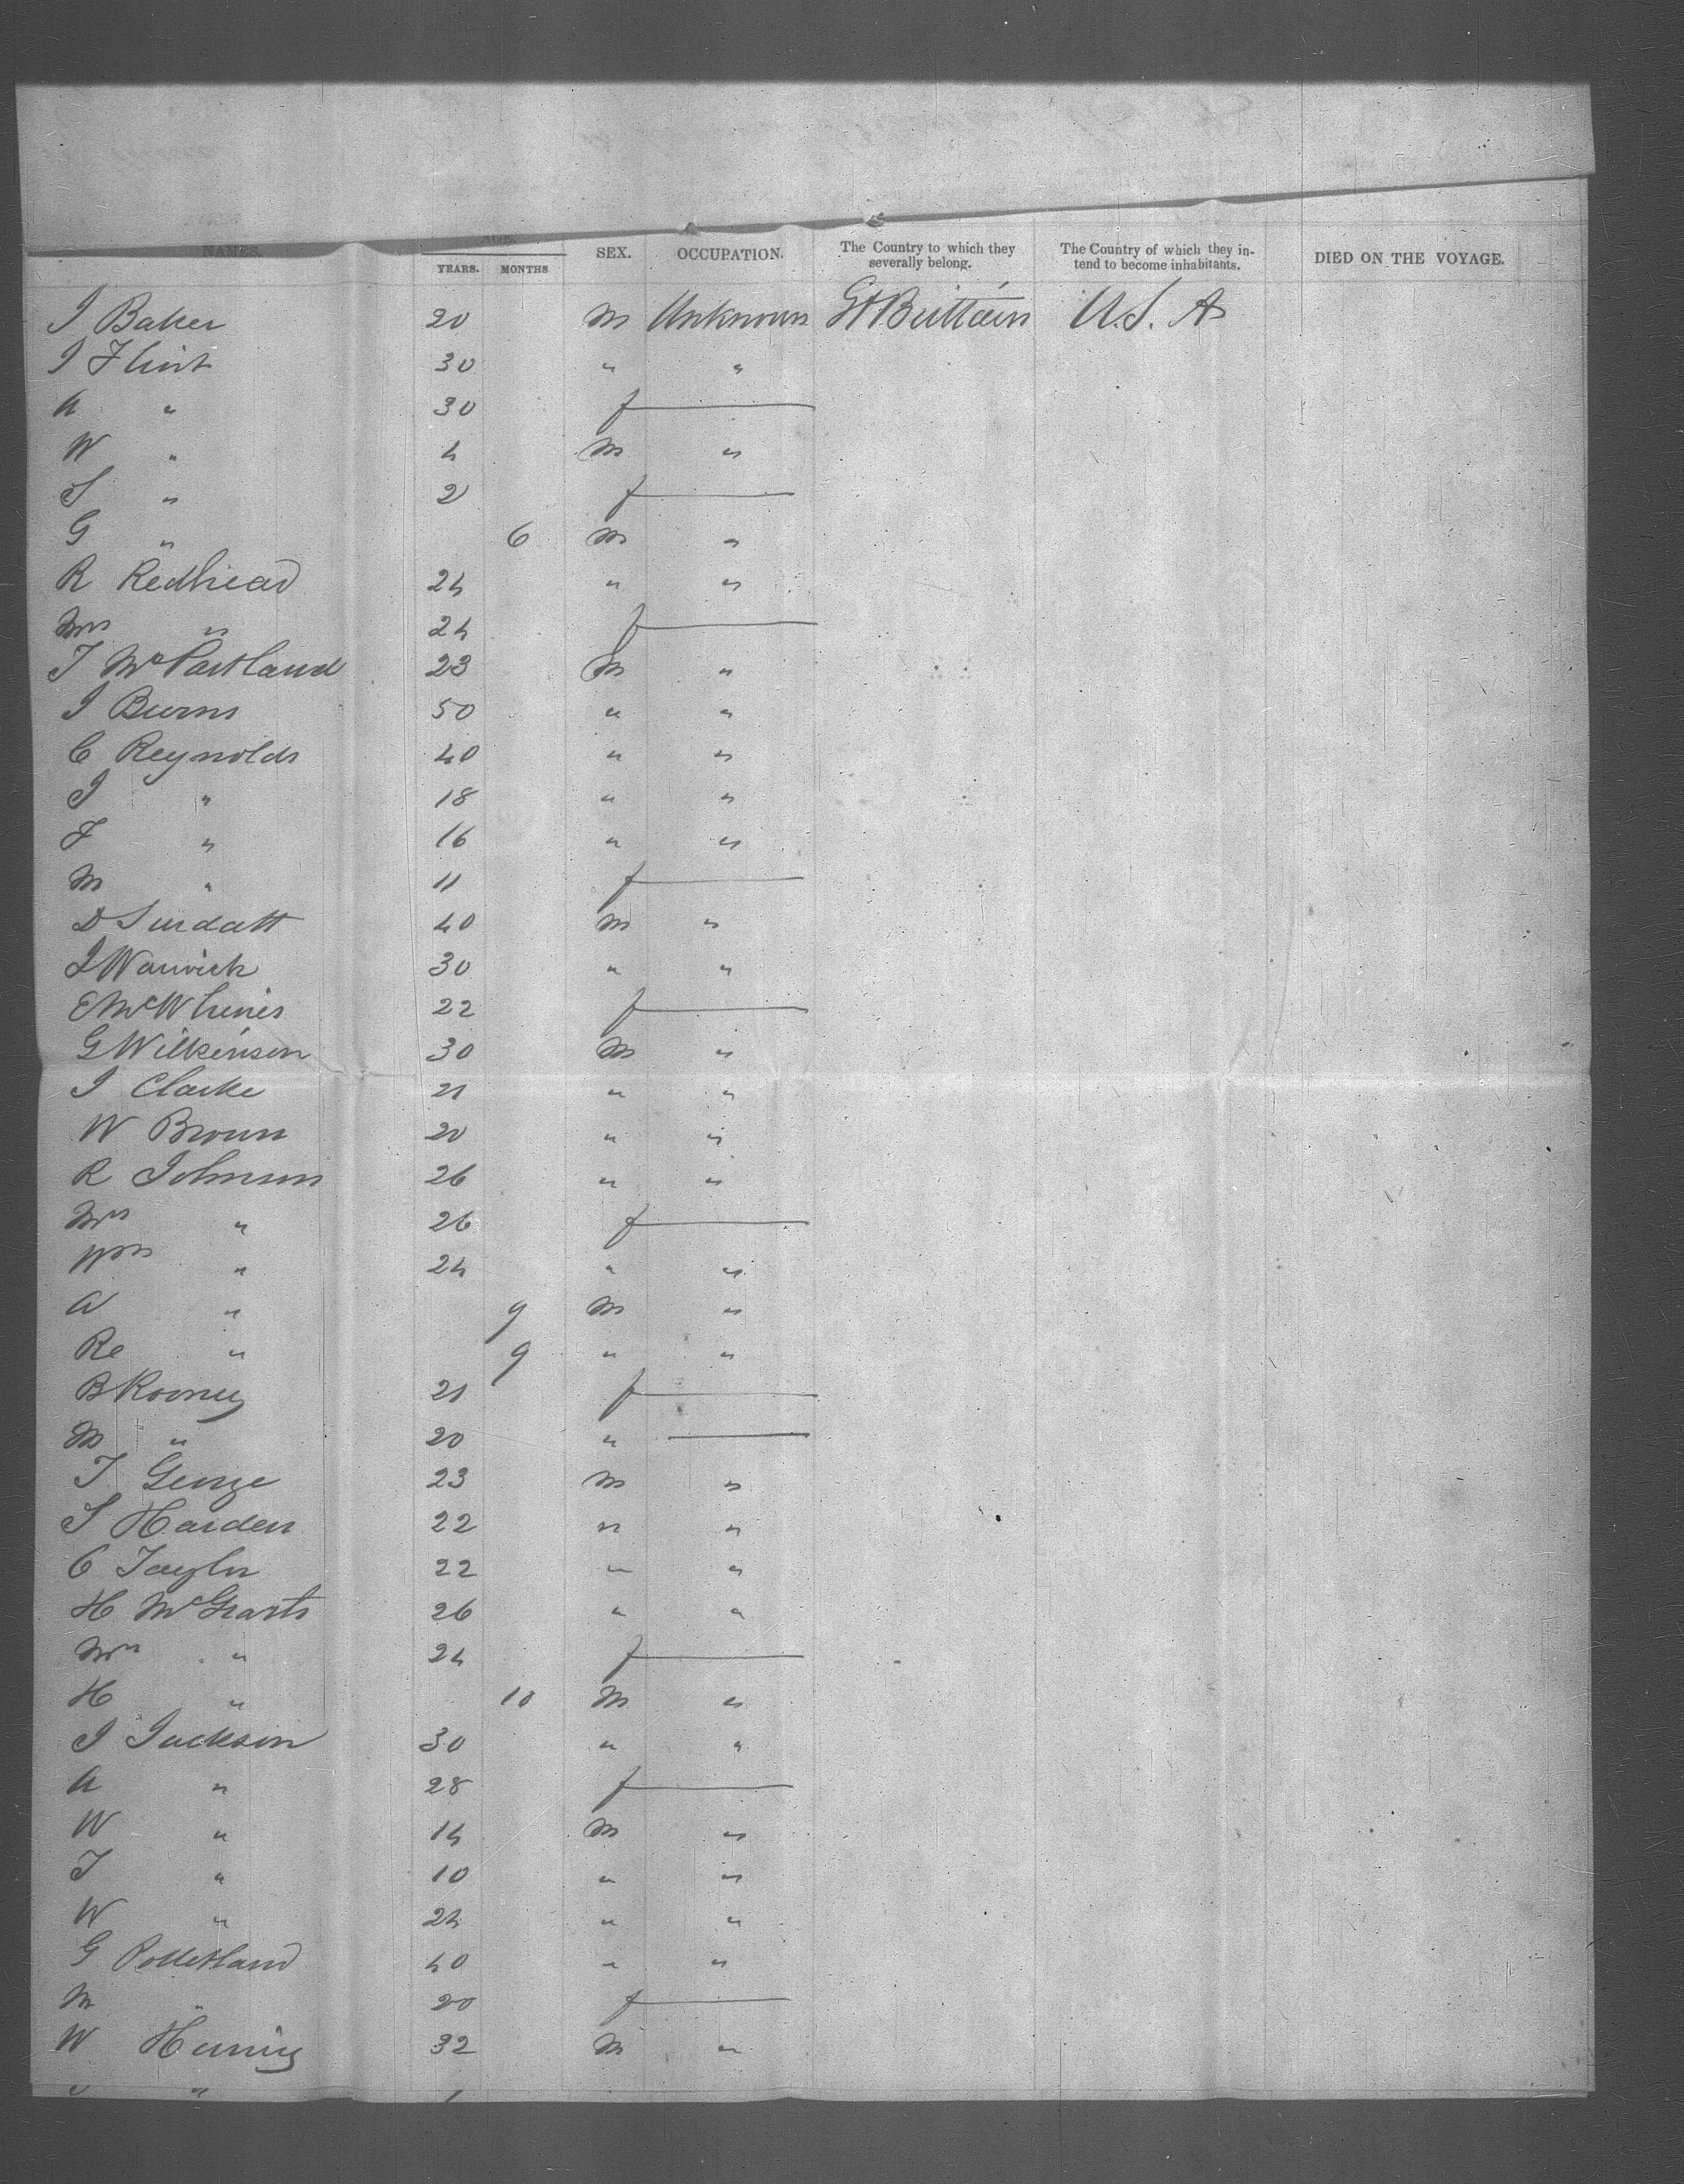 NAMES. AGE. SEX. OCCUPATION. The Country to which they severally belong. The Country of which they intend to become inhabitants. DIED ON THE VOYAGE.
YEARS. MONTHS
J Baker 20 M Unknown Gt Brittain U.S. A
J Flint 30 " "
A " 30 f
W " 4 M "
S " 2 f
G " 6 M "
R Redhead 24 " "
Mrs " 24 f
T McPartland 23 M "
J Burns 50 " "
C Reynolds 40 " "
J " 18 " "
F " 16 " "
M " 11 f
D 40 M "
J Warwick 30 " "
E 22 f
G Wilkinson 30 M "
J Clarke 21 " "
W Brown 20 " "
R Johnson 26 " "
Mrs " 26 f
Wm " 24 " "
A " 9 M "
Re " 9 " "
B Rooney 21 f
M " 20 "
T George 23 M "
S Harden 22 " "
C Taylor 22 " "
H 26 " "
Mrs " 24 f
H " 10 M "
J Jackson 30 " "
A " 28 f
W " 14 M "
T " 10 " "
W " 24 " "
G 40 " "
M " 20 f
W 32 M "